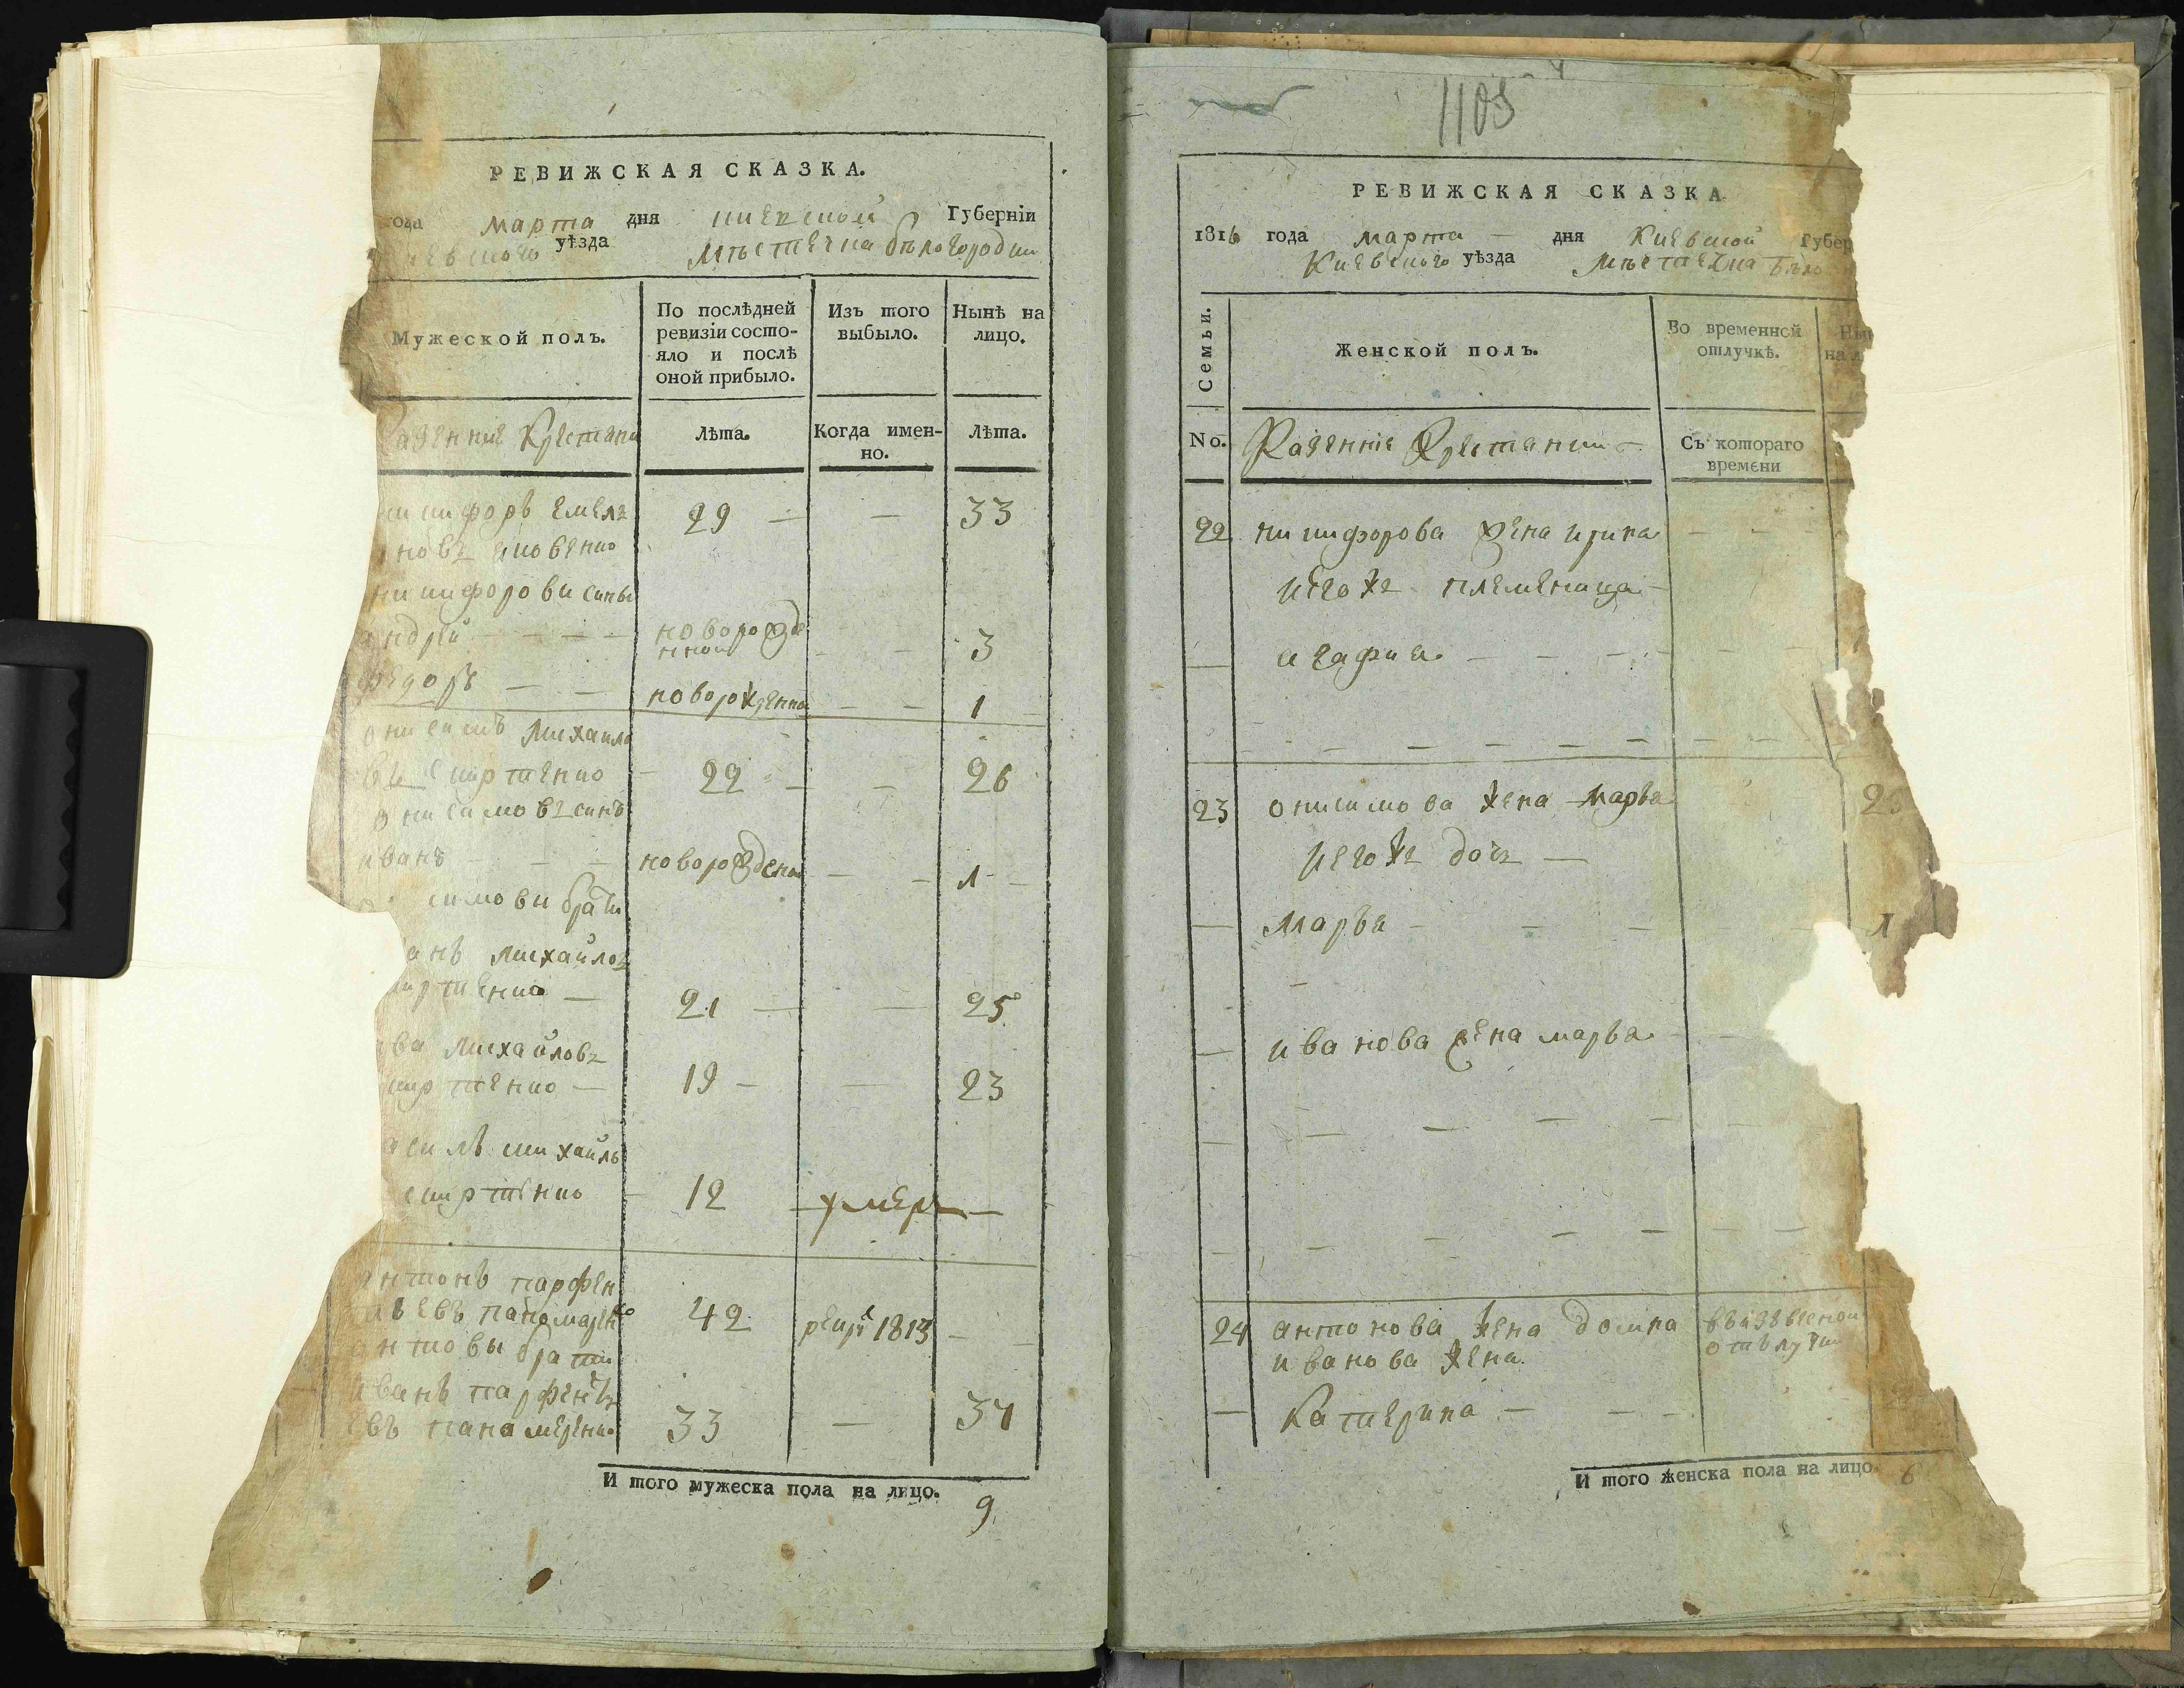 РЕВИЖСКАЯ СКАЗКА.
года марта дня киевской Губернiи
уѣзда мѣстечка бѣлогородки
Мужеской полъ.
По послѣдней ревизiи состо-
яло и послѣ
оной прибыло.
Изъ того
выбыло.
Нынѣ на
лицо.
казенние Крестяни
лѣта.
Когда имен-
но.
Лѣта.
никифоръ Емелъ
29 — — 33
никифорови сины
андрей — — — новорожде
нной — — 3
федоръ — — новорожденной — — 1
онисимъ михаило
въ скиртенко 22 — — 26
онисимовъ синъ
иванъ — — — новорожденой — — 1
симови брати
анъ михайловъ
иртенко — 21 — — 25
ва михайловъ
иртенко — 19 — — 23
асилъ михайлъ
скиртенко — 12 — умеръ —
антонъ парфен
42 1813 — —
брати
иванъ парфентъ
евъ панамаренко 33 — 37
И того мужеска пола на лицо. 9
1103
РЕВИЖСКАЯ СКАЗКА
1816 года марта — дня Киевской Губер
Киевского уѣзда мѣстечка бѣло
Семьи.
Женской полъ.
Во временной
отлучкѣ.
Нын
на л
No.
Казеннiе Крестянки
Съ котораго
времени
22 никифорова жена ирина — — —
егожъ племеница —
— агафия — — — —
23 онисимова жена марья 2
егожъ дочъ —
— марья — — — 1
— иванова жена марья — —
24 антонова жена домна
иванова жена
— Катерина — — —
И того женска пола на лицо. 6